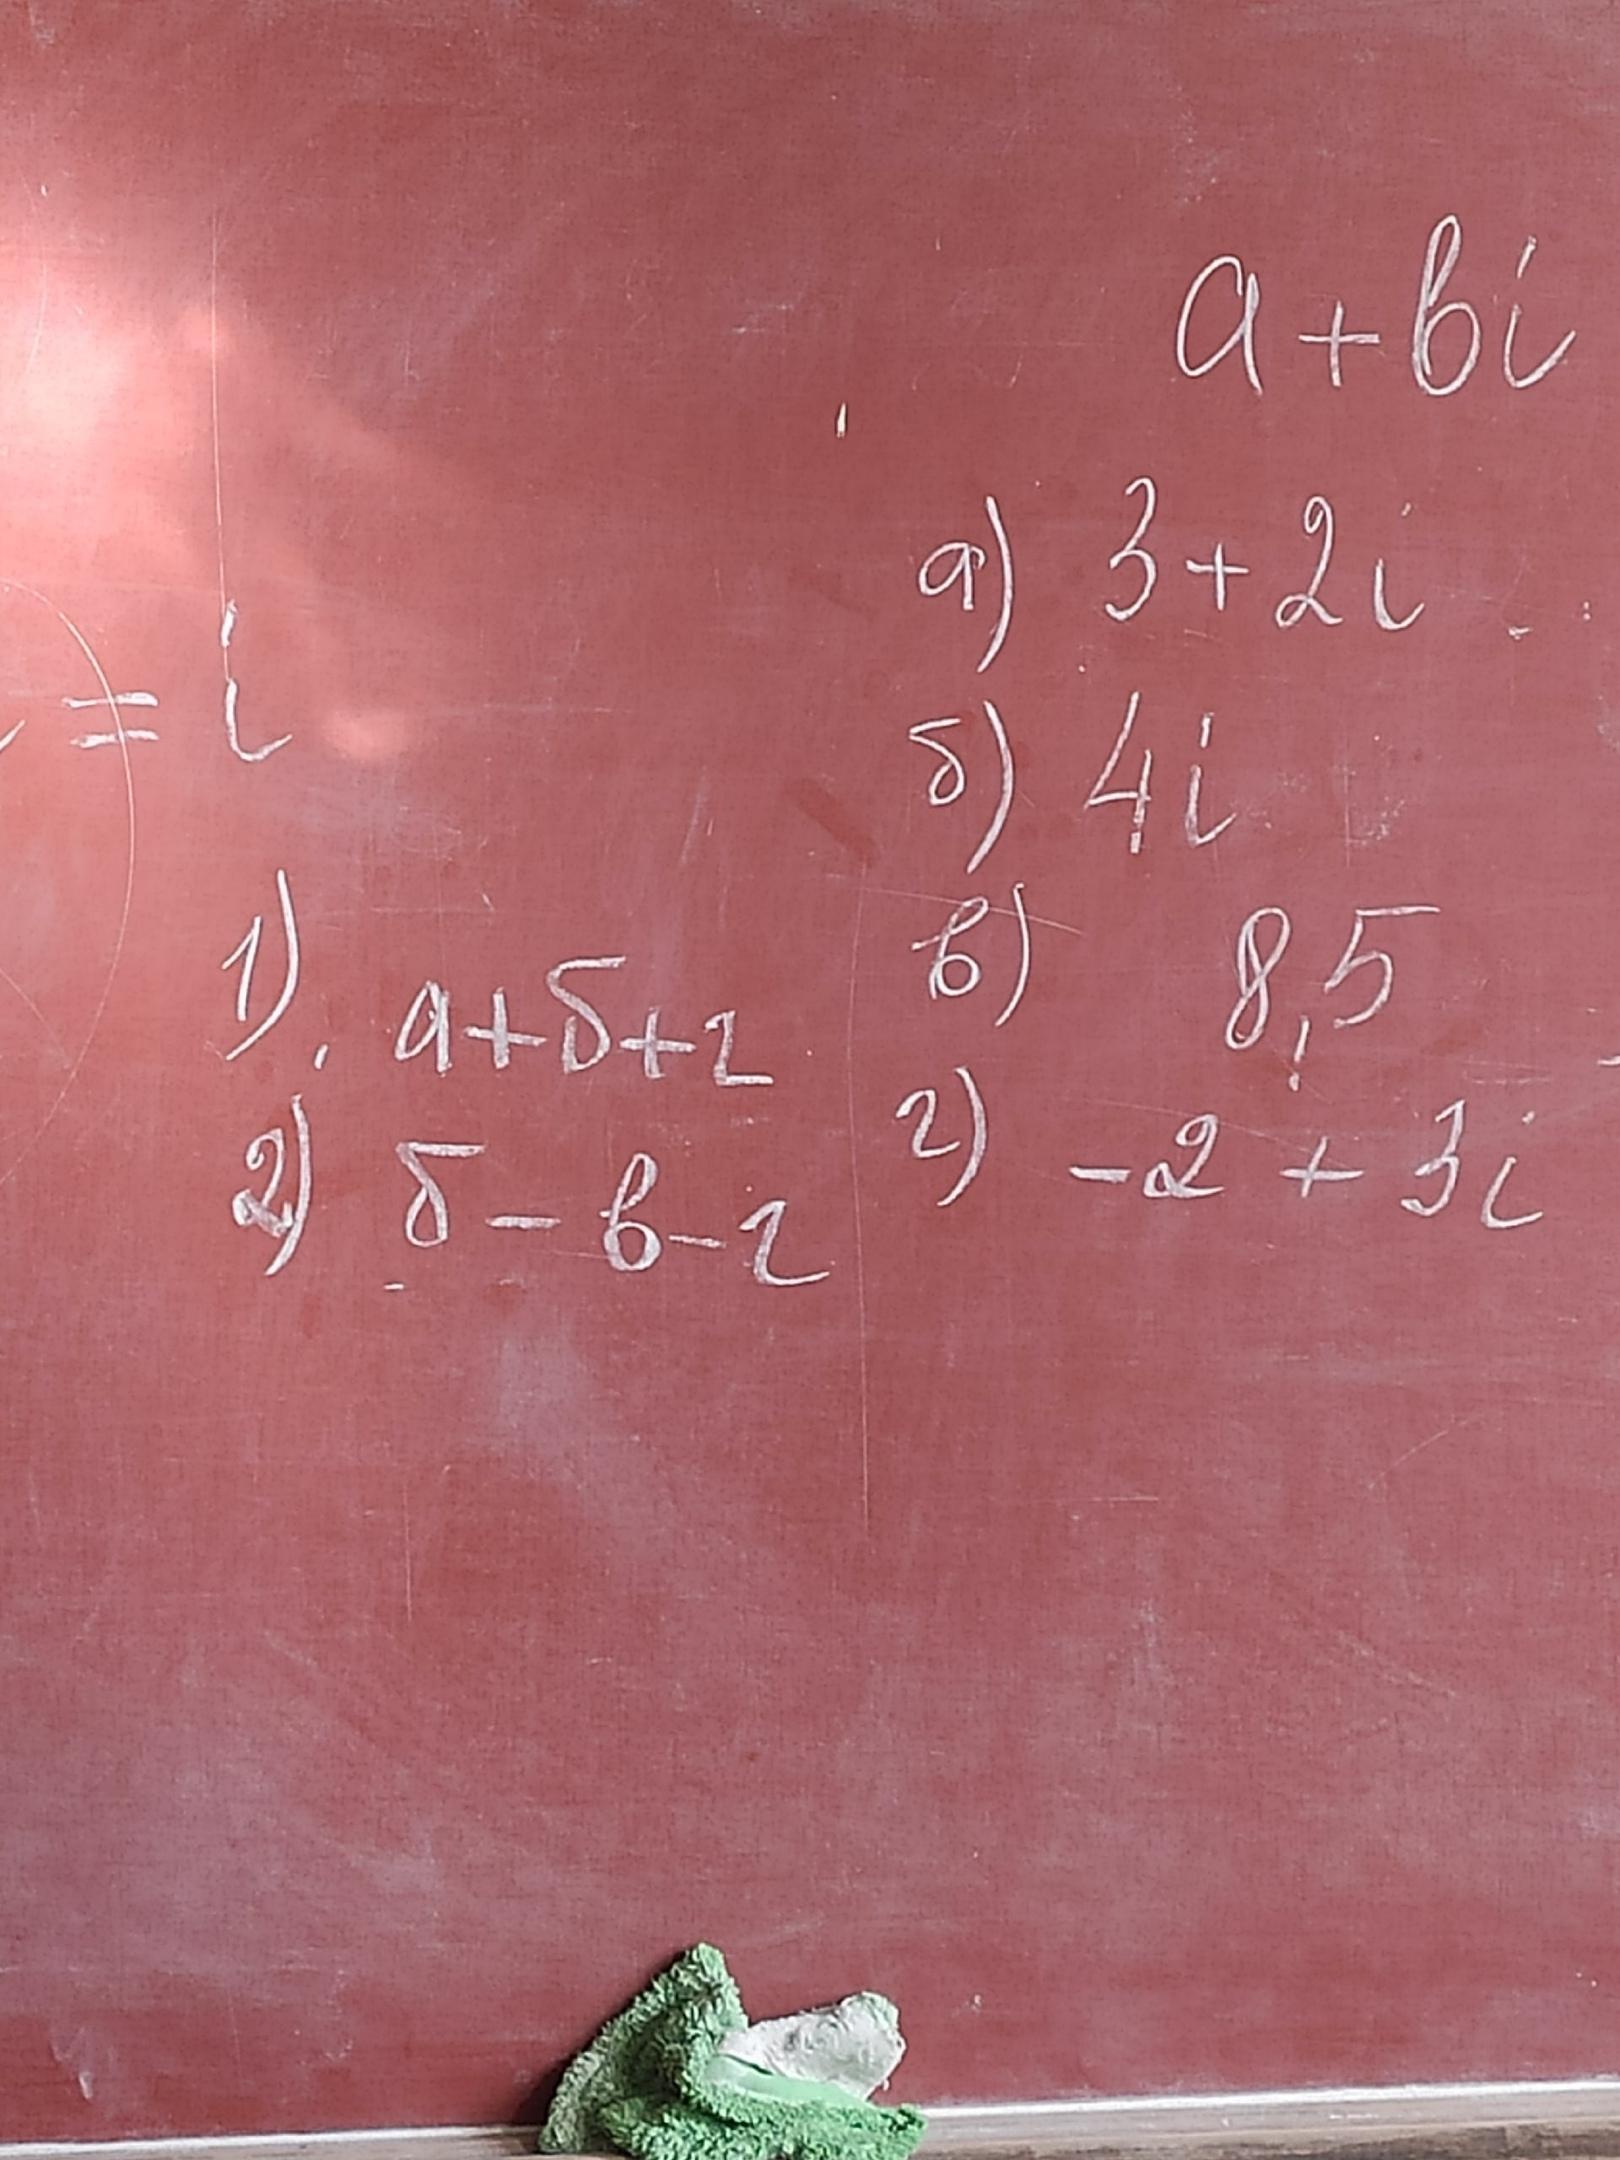 a + bi
а) 3 + 2i
= i
б) 4i
в) 8,5
1). а+б+г
г) -2 + 3i
2) б - в - г